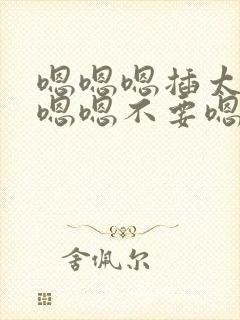 嗯嗯嗯插太
嗯嗯不要嗯
舍佩尔